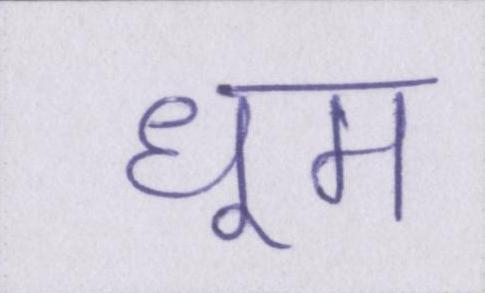 धूम